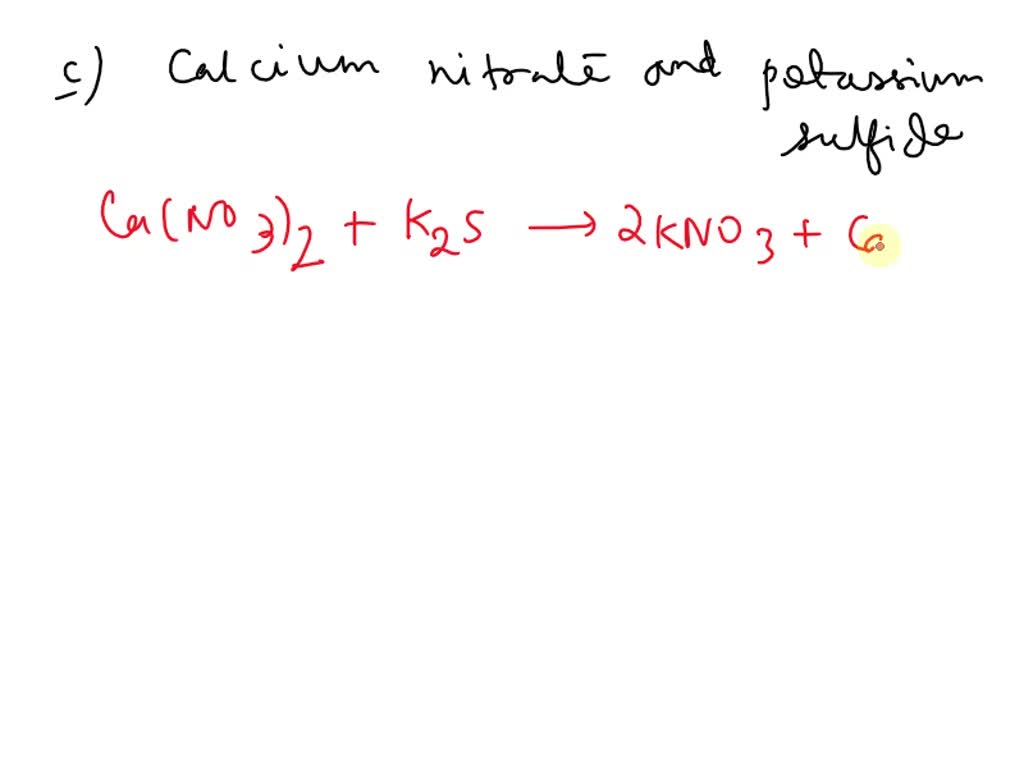 c) Calcium nitrate and potassium
sulfide
Ca(NO3)2 + K2S → 2KNO3 + Ca